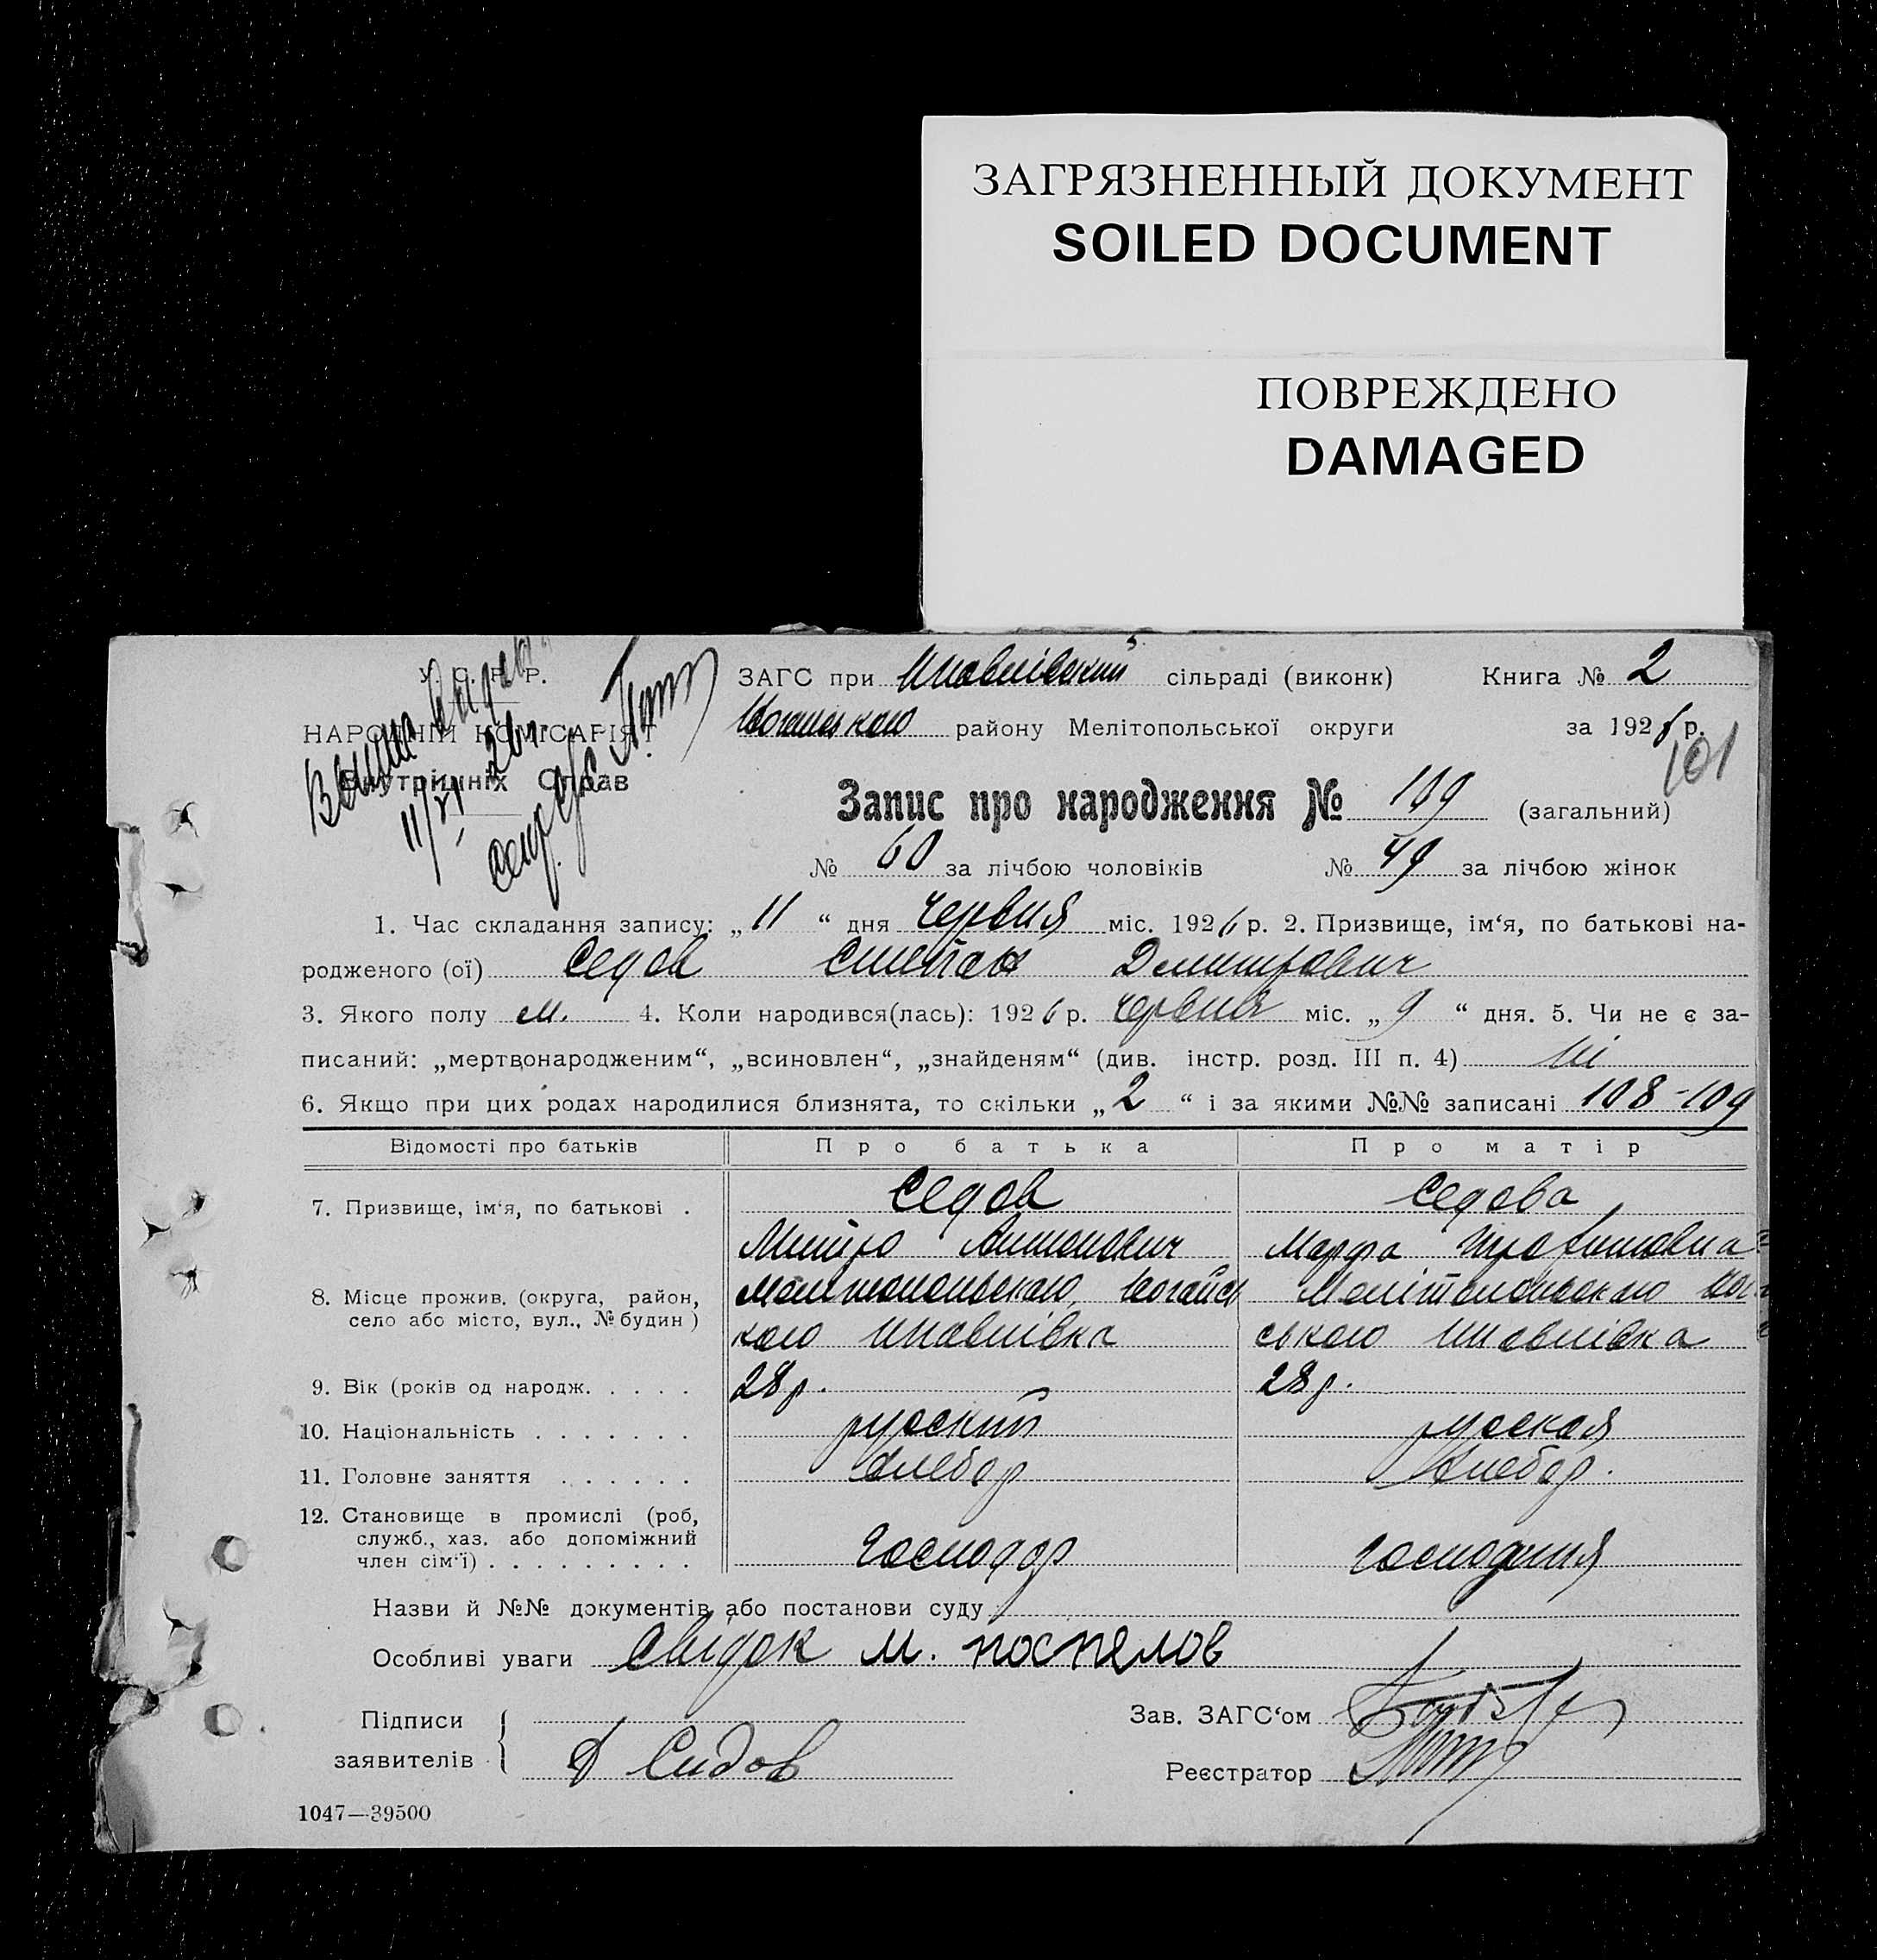 ЗАГРЯЗНЕННЫЙ ДОКУМЕНТ
SOILED DOCUMENT
ПОВРЕЖДЕНО
DAMAGED
У. С. Р. Р.
НАРОДНІЙ КОМІСАРІЯТ
Внутрішніх Справ
11/VI 26 р.
ЗАГС при сільраді (виконк) Книга № 2
району Мелітопольської округи за 1926 р.
101
Запис про народження № 109 (загальний)
№ 60 за лічбою чоловіків № 49 за лічбою жінок
1. Час складання запису: „ 11 “ дня червня міс. 1926 р. 2. Призвище, ім‘я, по батькові на-
родженого (ої) Седов Степан Дмитрович
3. Якого полу м. 4. Коли народився(лась): 1926 р. червня міс. „ 9 “ дня. 5. Чи не є за-
писаний: „мертвонародженим“, „всиновлен“, „знайденям“ (див. інстр. розд. III п. 4) ні
6. Якщо при цих родах народилися близнята, то скільки „ 2 “ і за якими №№ записані 108-109
Відомості про батьків Про батька Про матір
7. Призвище, ім‘я, по батькові . Седов Седова
Митро Антонович Марфа Трофимовна
8. Місце прожив. (округа, район, Мелітопольського Ногайсь Мелітопольського Ног
село або місто, вул., № будин) кого ського
9. Вік (років од народж. . . . . 28 р. 28 р.
10. Національність . . . . . . . руский руская
11. Головне заняття . . . . . . хлебор хлебор.
12. Становище в промислі (роб,
служб., хаз. або допоміжний
член сім‘ї) . . . . . . . . . господар господиня
Назви й №№ документів або постанови суду
Особливі уваги свідок М. поспелов
Підписи
заявителів Д Сидов
Зав. ЗАГС‘ом
Реєстратор
1047—39500